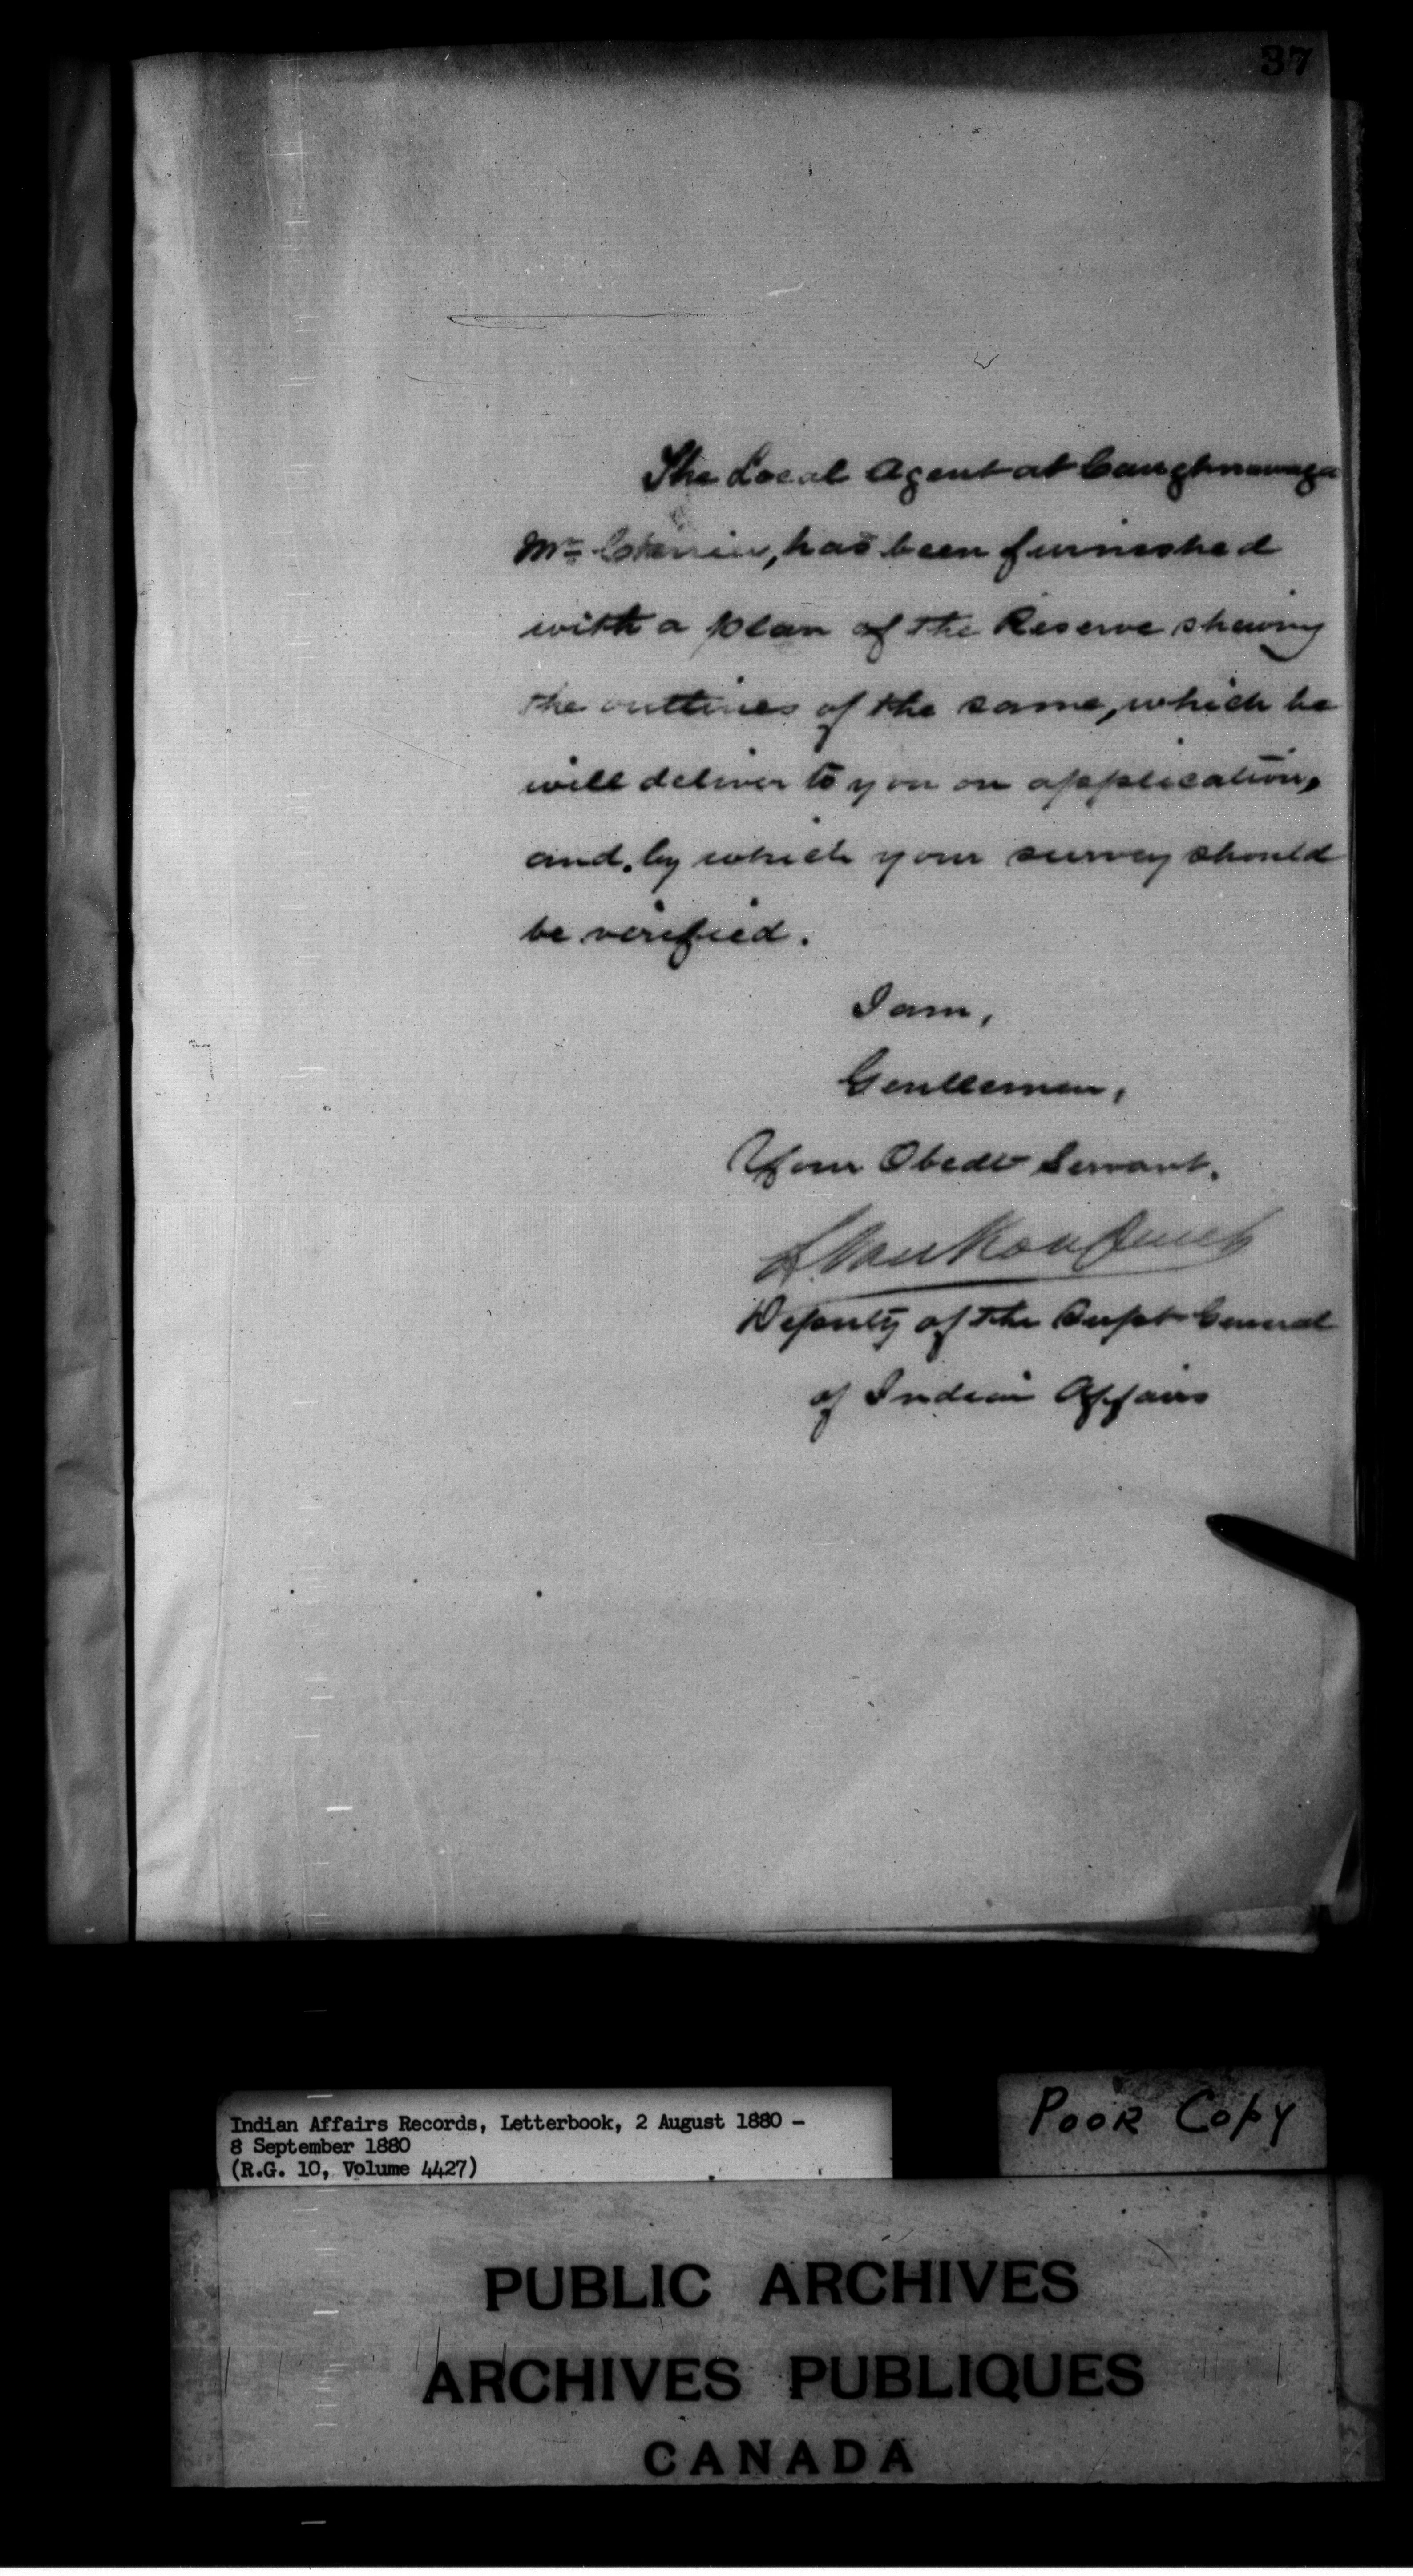 37
The Local Agent at Caughnawaga
Mr. Cherrier, has been furnished
with a plan of the Reserve shewing
the outlines of the same, which he
will deliver to you on application,
and by which your survey should
be verified.
I am,
Gentlemen,
Your Obedt Servant.
L. VanKoughnet
Deputy of the Supt General
of Indian Affairs
Indian Affairs Records, Letterbook, 2 August 1880 -
8 September 1880
(R.G. 10, Volume 4427)
POOR COPY
PUBLIC ARCHIVES
ARCHIVES PUBLIQUES
CANADA